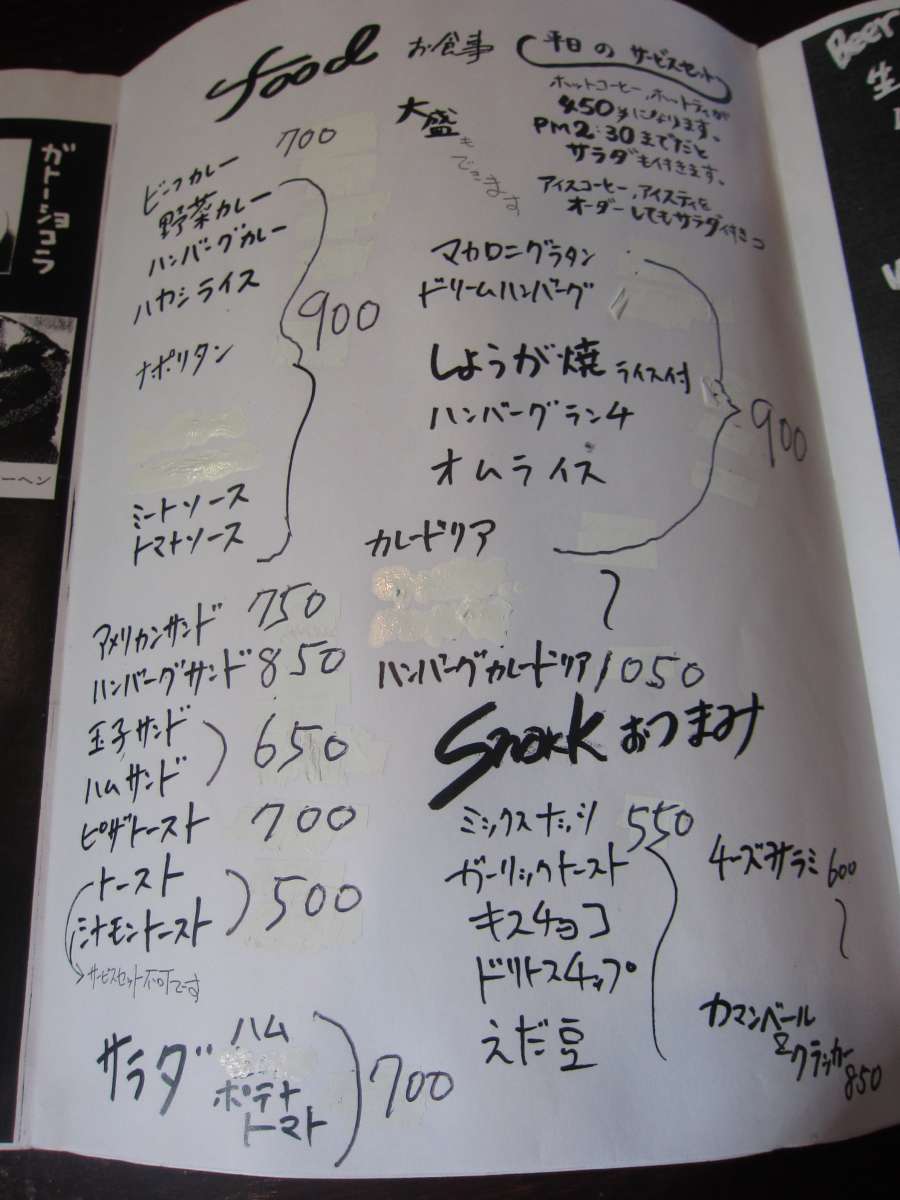 food お食事
平日のサービスセット
ホットコーヒー、ホットティが
450円になります。
PM2:30までだと
サラダも付きます。
アイスコーヒー、アイスティを
オーダーしてもサラダ付きつ
大盛もできます
ビーフカレー 700
野菜カレー
ハンバーグカレー
ハヤシライス
900
ナポリタン
ミートソース
トマトソース
アメリカンサンド 750
ハンバーグサンド 850
玉子サンド
ハムサンド
650
ピザトースト 700
トースト
シナモントースト
500
サービスセット不可です
サラダ
ハム
ポテト
トマト
700
マカロニグラタン
ドリームハンバーグ
しょうが焼 ライス付
ハンバーグランチ
オムライス
900
カレードリア
〜
ハンバーグカレードリア 1050
Snack おつまみ
ミックスナッツ 550
ガーリックトースト
キスチョコ
ドリトスチップ
えだ豆
チーズサラミ 600
〜
カマンベール
&クラッカー
850
ガトーショコラ
ーヘン
Beer
生